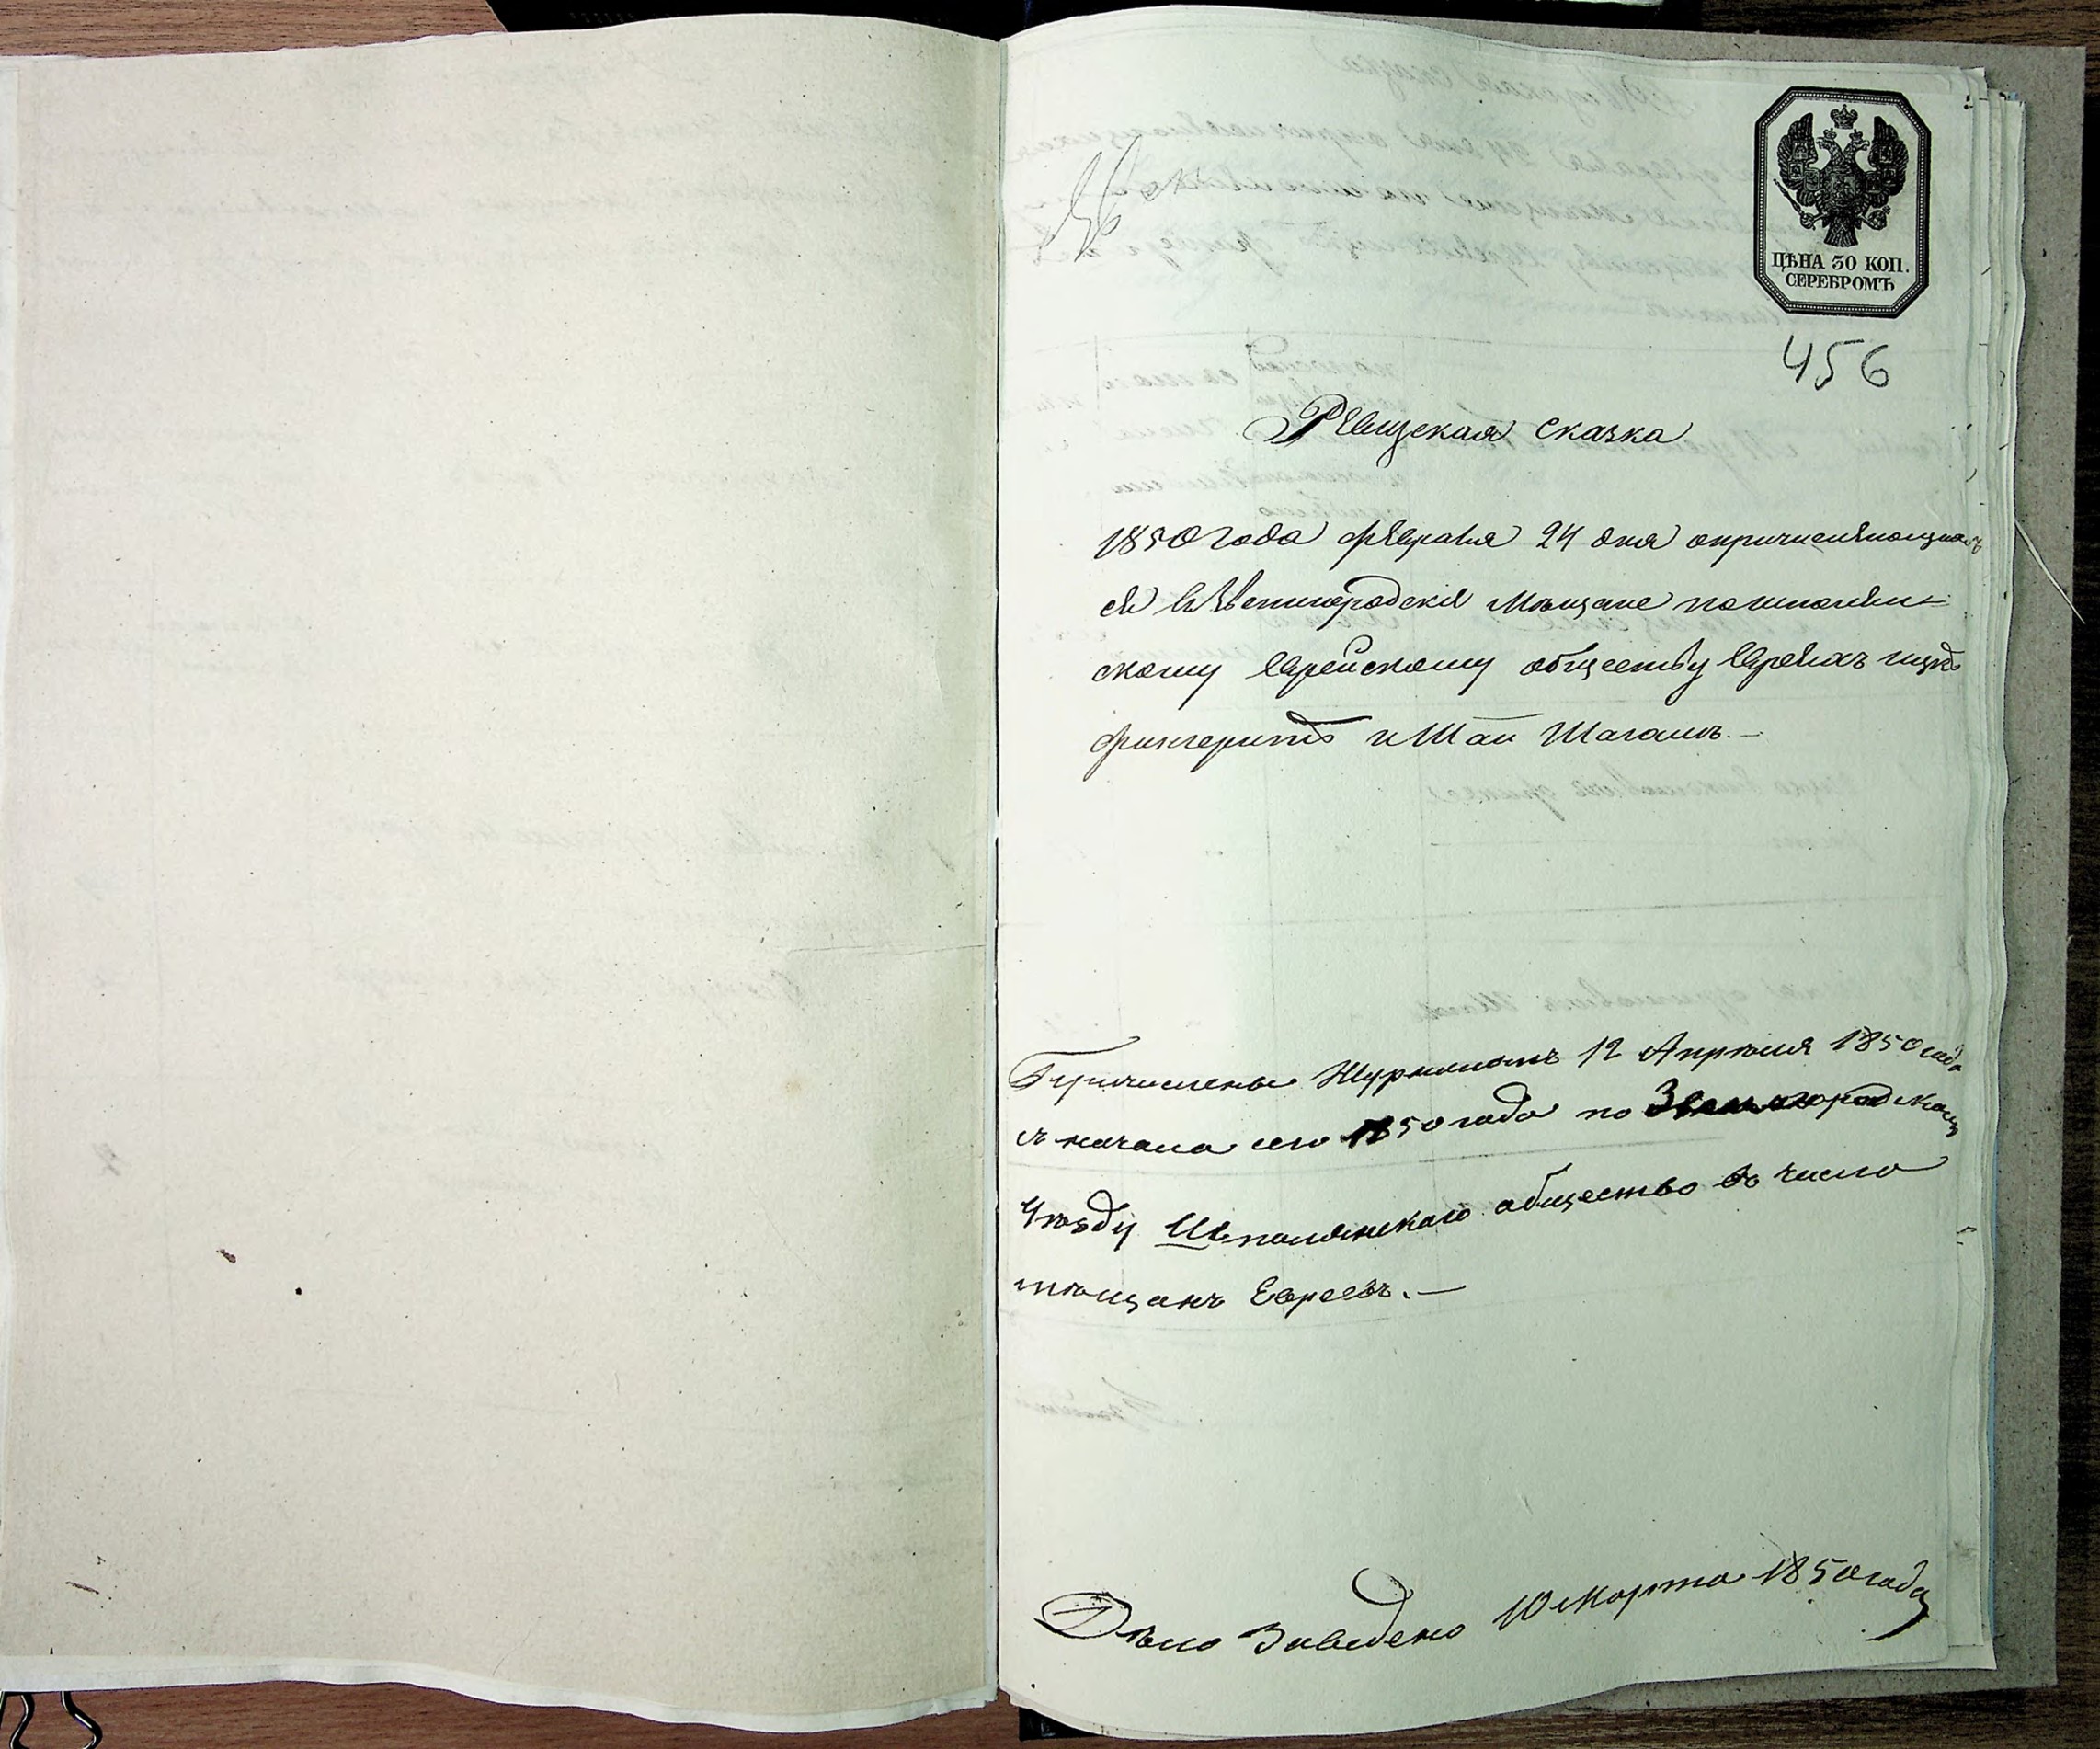 ЦѢНА 30 КОП.
СЕРЕБРОМЪ
456
Ревизская сказка
1850 года февраля 24 дня о причисляющих
ся в Звенигородские Мещане по шполян
скому Еврейскому обществу Евреях Ицко
Фингерит и Шая
Причислены Журналомъ 12 Апрѣля 1850 года
съ начала сего 1850 года по Звенигородскому
Уѣзду Шполянскаго общество въ число
мѣщанъ Евреевъ. —
Дѣло Заведено 10 Марта 1850 года